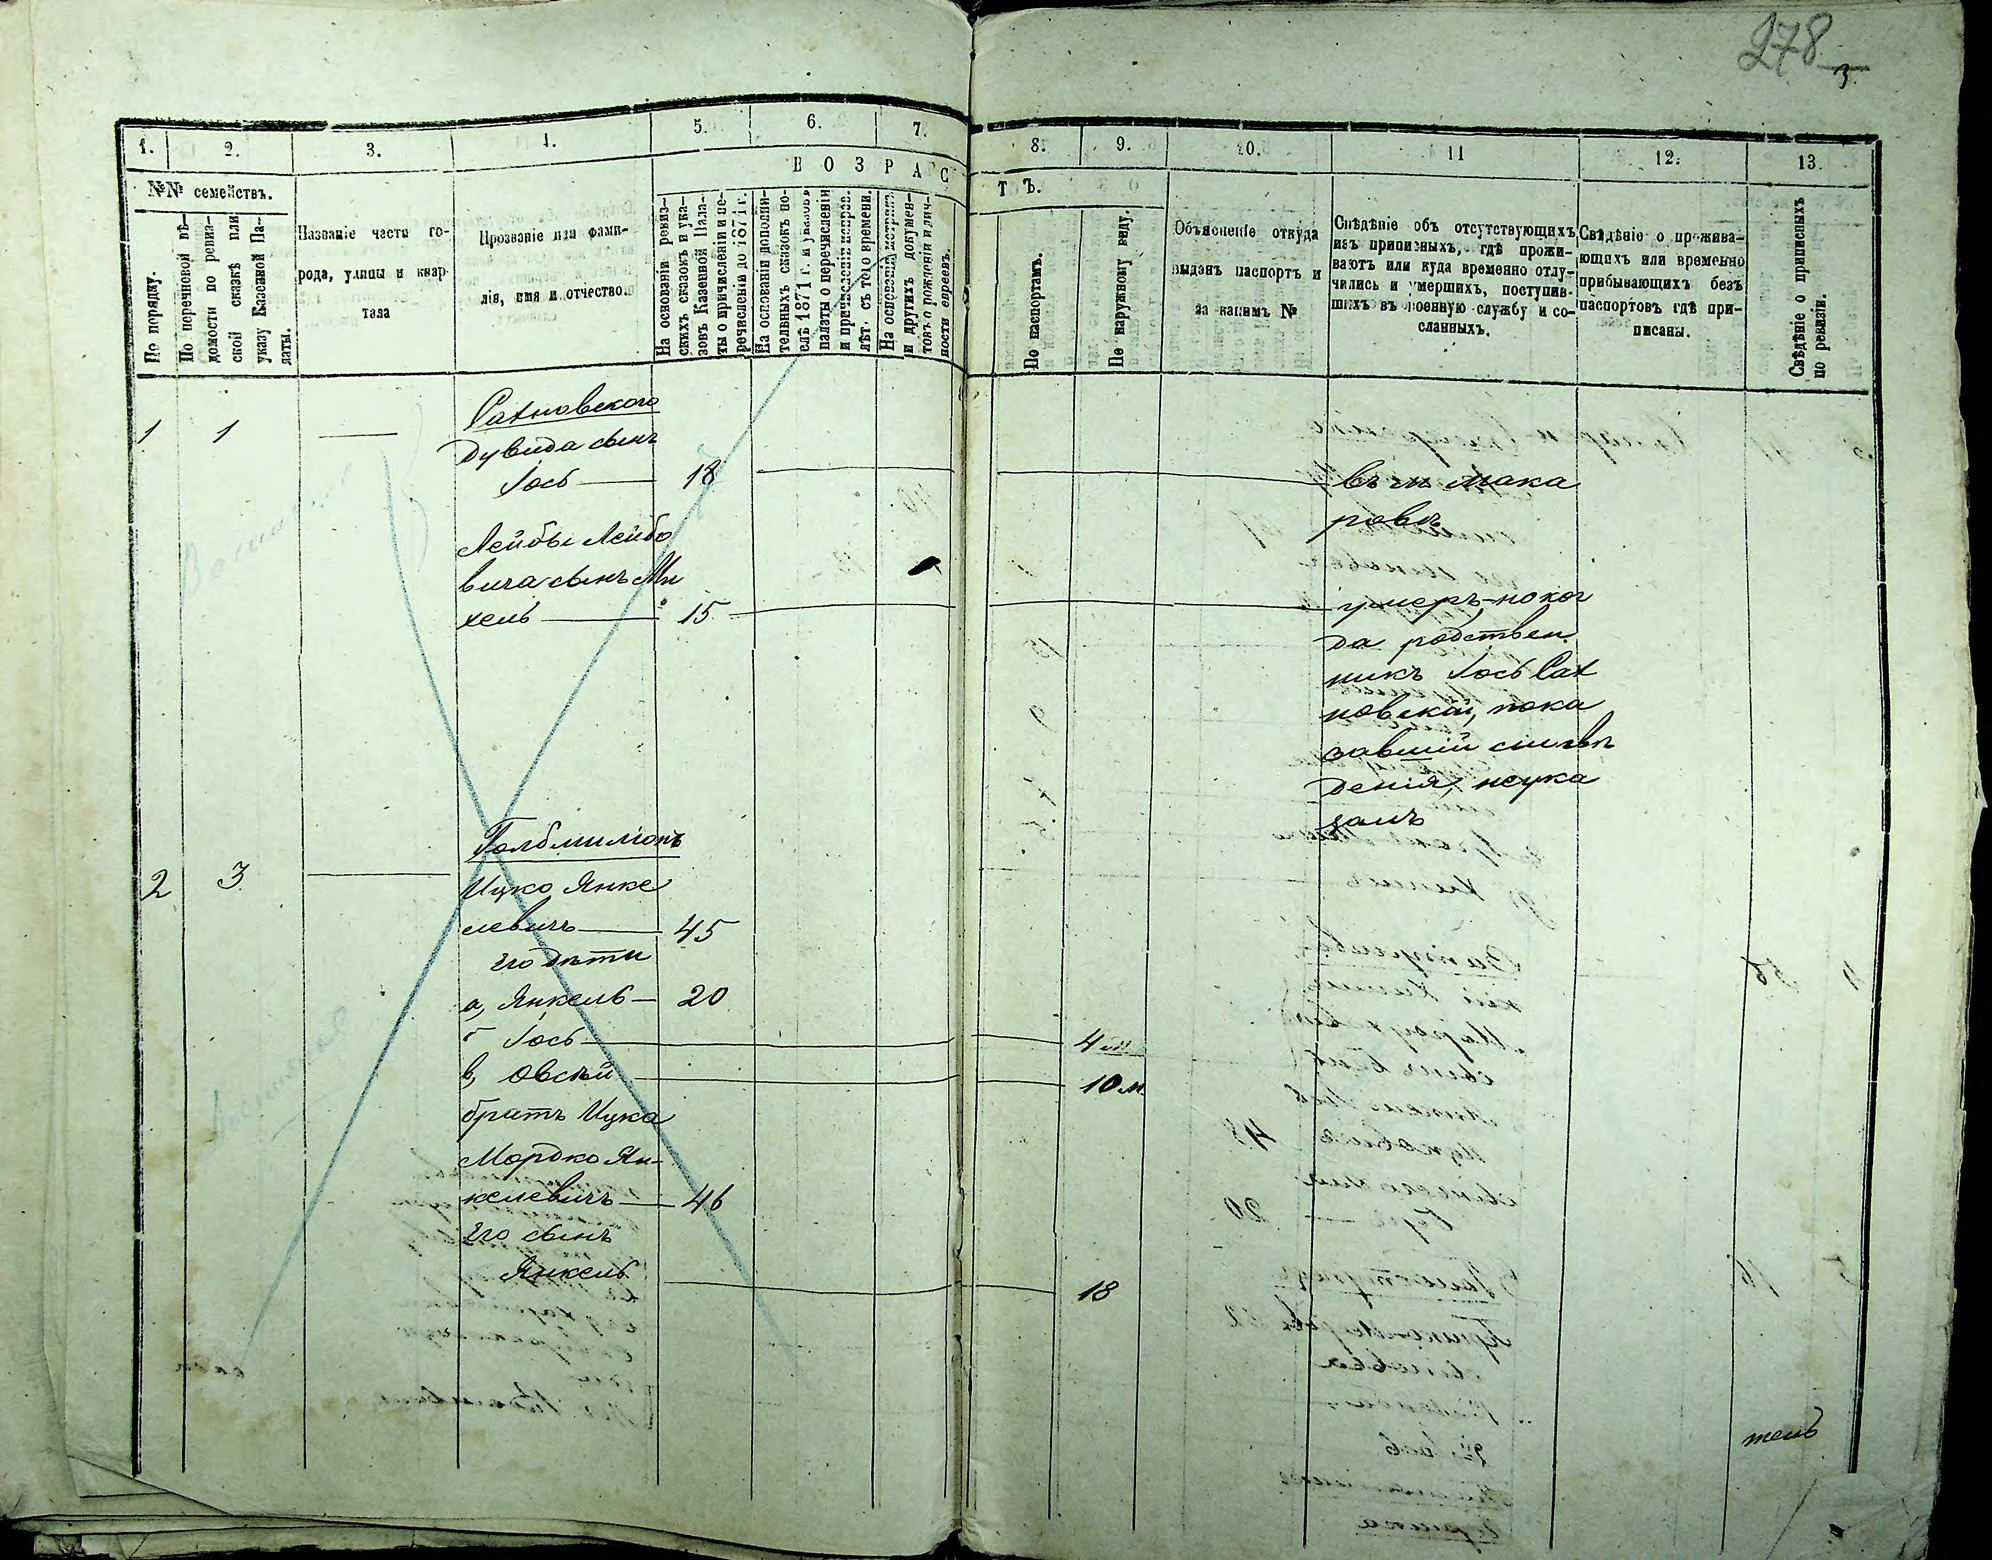 278
3
1.
2.
3.
4.
5.
6.
7.
8.
9.
10.
11
12.
13.
№№ семействъ.
ВОЗРАСТЪ.
По порядку.
По перечновой вѣ-
домости по ревиз-
ской сказкѣ или
указу Казенной Па-
латы.
Названіе части го-
рода, улицы и квар-
тала
Прозваніе или фами-
лія, имя и отчество.
На основаніи ревиз-
скихъ сказокъ и ука-
зовъ Казенной Пала-
ты о причисленіи и пе-
речисленіи до 1871 г.
На основаніи дополни-
тельныхъ сказокъ по-
слѣ 1871 г. и указовъ
палаты о перечисленіи
лѣт. съ того времени.
и другихъ докумен-
товъ о рожденіи и лич-
ности евреевъ.
По паспортамъ.
По наружному виду.
Объясненіе откуда
выданъ паспортъ и
за какимъ №
Свѣдѣніе объ отсутствующихъ
изъ приписныхъ, гдѣ прожи-
ваютъ или куда временно отлу-
чились и умершихъ, поступив-
шихъ въ военную службу и со-
сланныхъ.
Свѣдѣніе о прожива-
ющихъ или временно
прибывающихъ безъ
паспортовъ гдѣ при-
писаны.
Свѣдѣніе о приписныхъ
по ревизіи.
1 1
Ратновского
Дувида сынъ
Іось 18
въ м Мака
ровѣ
Лейбы Лейбо
вича сынъ Ми
хель 15
умеръ, ноког
да родствен
никъ Іось Рат
новскій, пока
завшій сіи свѣ
денія, неука
залъ
2 3
Голбмиліонъ
Ицко Янке
левичъ 45
Его дѣти
а, Янкель 20
б Іось 4 м
в, Овсѣй 10 м.
братъ Ицка
Мордко Ян-
келевичъ 46
Его сынъ
Янкель 18
тель